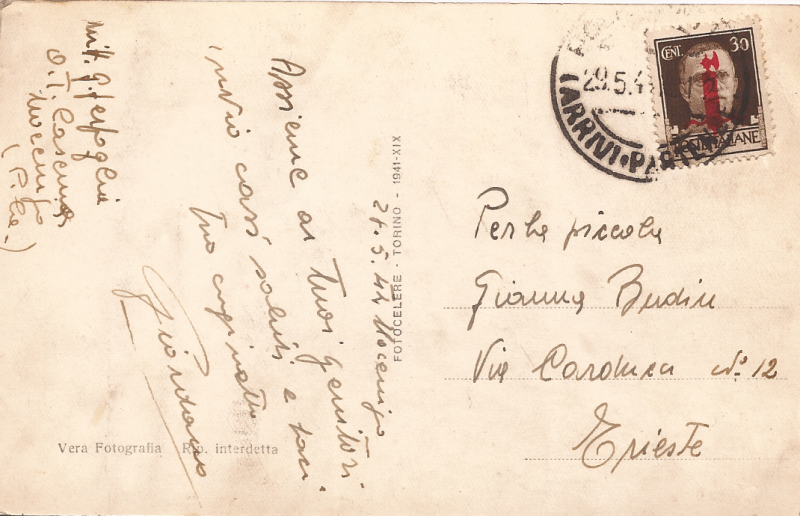 Mitt. G. Serfoglia
O. T. Caserma
Mocenigo
(P.  )
Assieme ai Tuoi genitori
invio cari saluti e baci
Tuo cuginetto
Giordano
21.5.44 Mocenigo
FOTOCELERE - TORINO - 1941-XIX
Vera Fotografia Rip. interdetta
29.5.4
(ARRIVI • PARTEN
CENT. 30
ITALIANE
Per la piccola
Gianna Budin
Via Carducci No. 12
Trieste